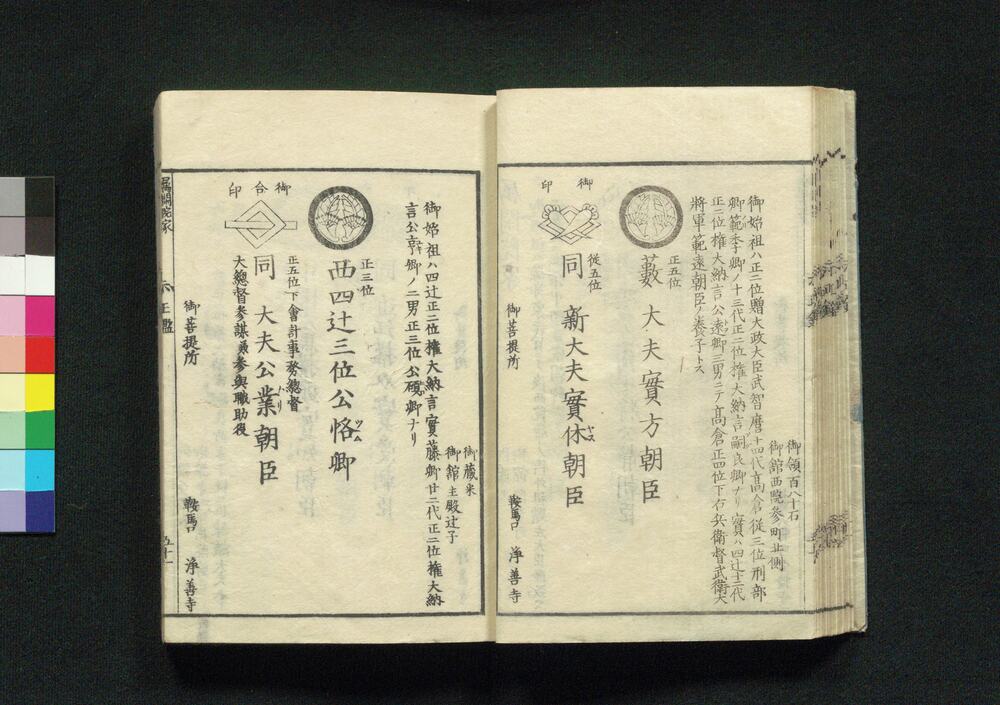 御領百八十石
御館西院参町北側
御始祖ハ正二位贈大政大臣武智麿十四代高倉従三位刑部
卿範季卿ノ十三代正二位権大納言嗣良卿ナリ實ハ四辻十二代
正二位権大納言公遠卿三男ニテ高倉正四位下右兵衛督武衛大
将軍範遠朝臣ノ養子トス
正五位
藪 大夫實方朝臣
御印
従五位
同 新大夫實休朝臣
ヤス
御菩提所
鞍馬口 淨善寺
御蔵米
御館主殿辻子
御始祖ハ四辻正二位権大納言實藤卿廿二代正二位権大納
言公亨卿ノ二男正三位公碩卿ナリ
正三位
西四辻三位公恪卿
ツム
御合印
正五位下會計事務総督
同 大夫公業朝臣
ナリ
大總督参謀兼参與職助役
御菩提所
鞍馬口 淨善寺
五十一